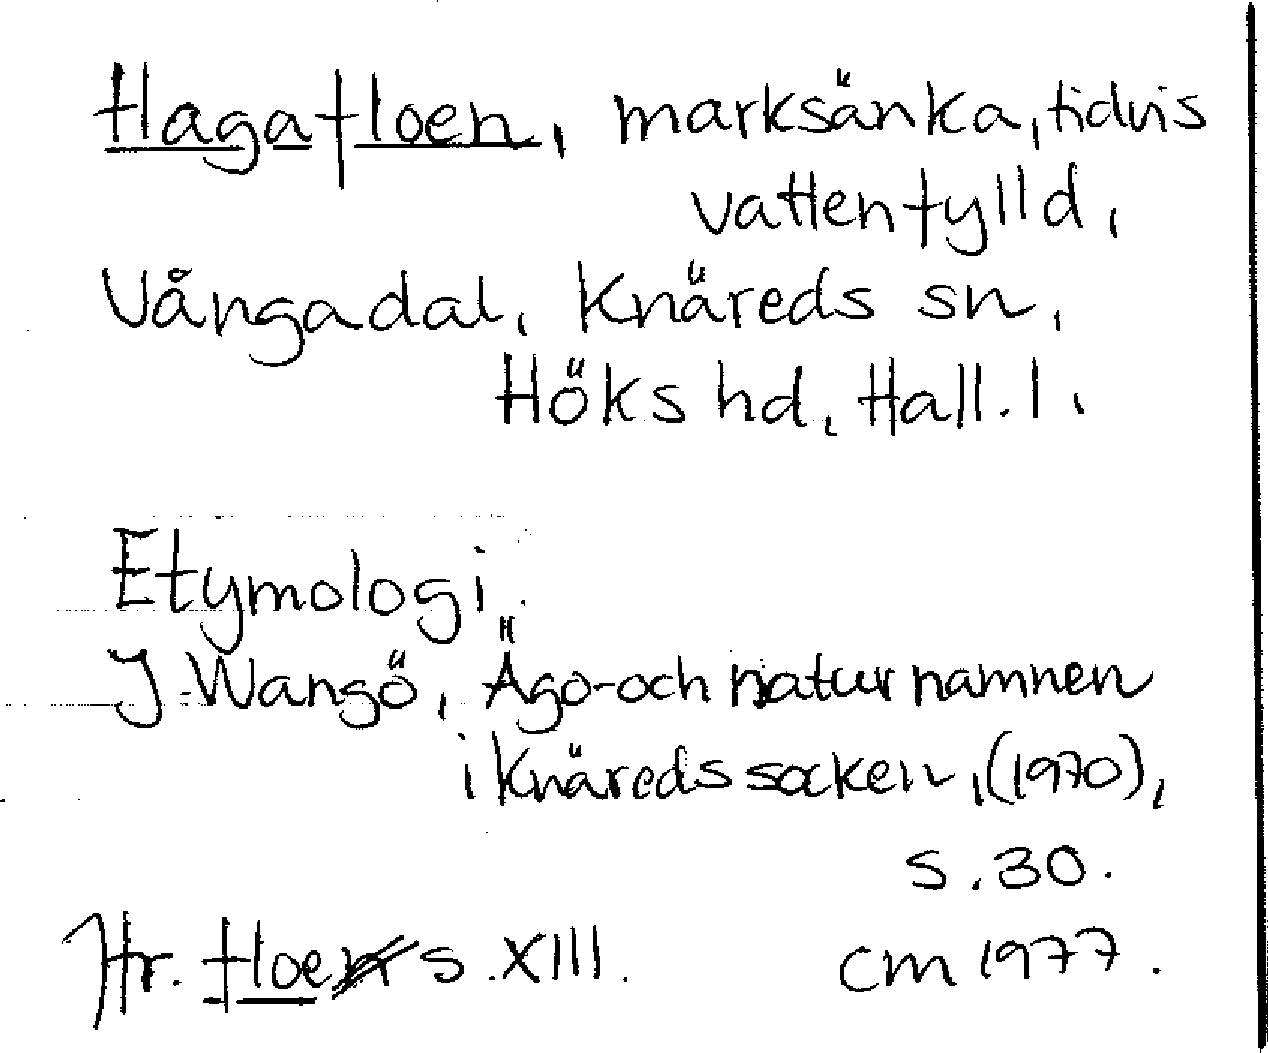 Hagafloen, marksänka, tidvis
vattenfylld,
Vångadal, Knäreds sn,
Höks hd, Hall. l.
Etymologi
J. Wangö, Ägo- och naturnamnen
i Knäreds socken, (1970),
s. 30.
Jfr. floe s. XIII. CM 1977.